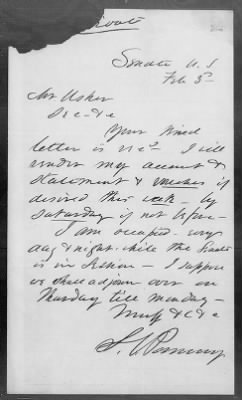 Private
Senate U. S
Feb 3d
Mr Usher
Sec &c
Your kind
letter is recd I will
render my account &
statement & vouchers if
desired this week - by
Saturday if not before -
I am occupied very
day & night while the Senate
is in Session - I suppose
we shall adjourn over on
Thursday till Monday -
Truly &c &c
S. C. Pomeroy